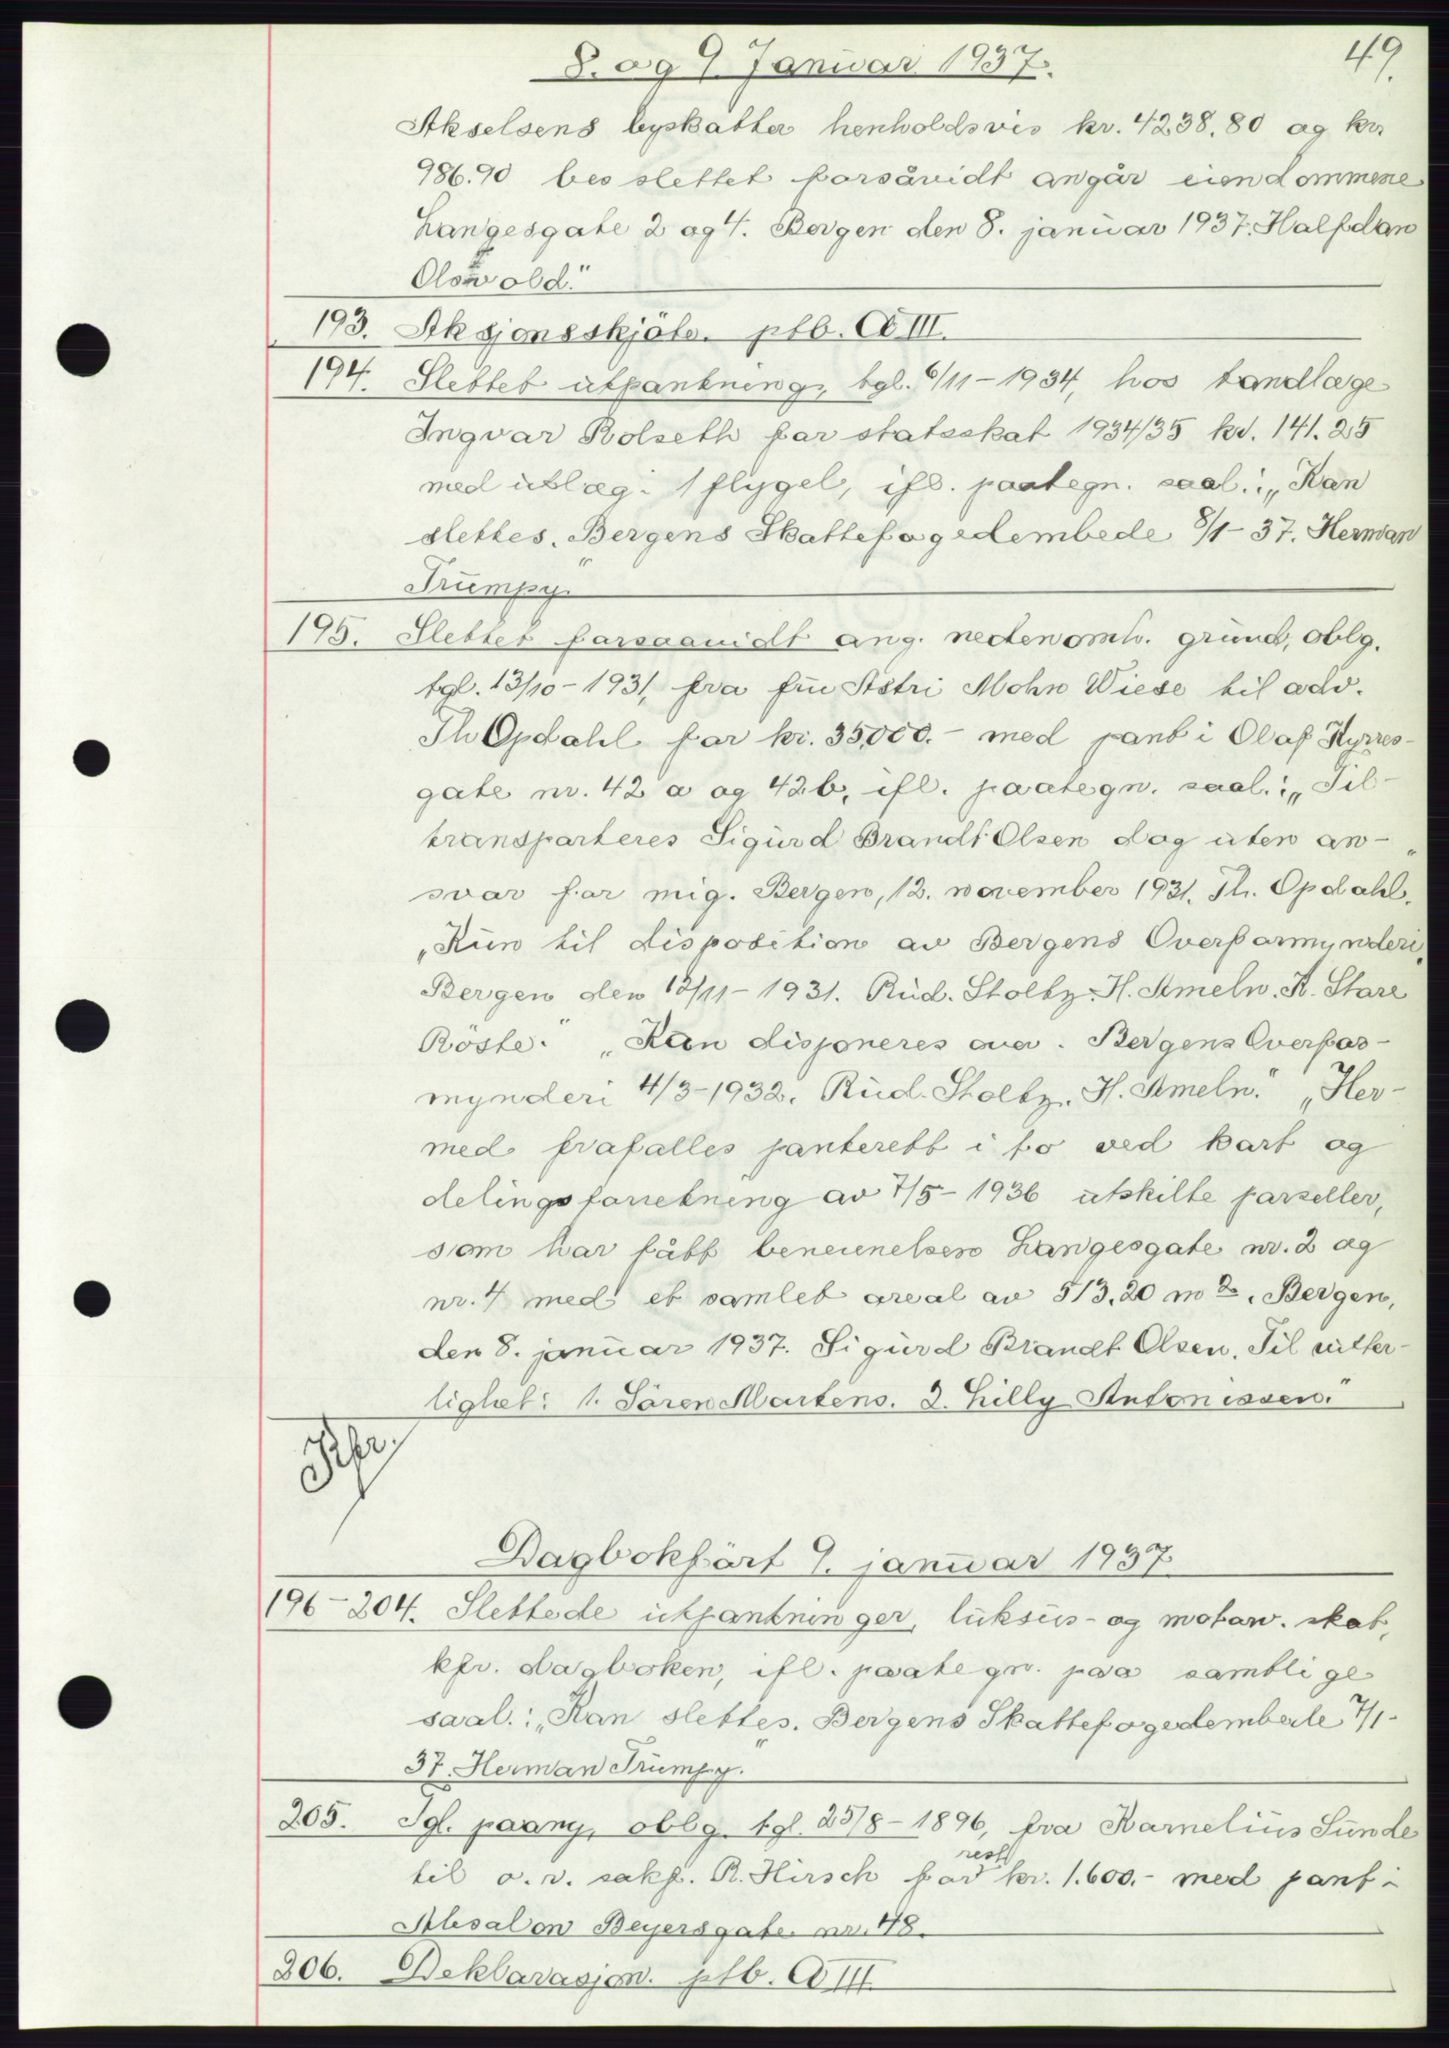 8. og 9. Januar 1937.
49.
Akselsens byskatter henholdsvis kr. 4238.80 og kr.
986.90 bes slettet forsåvidt angår eiendommene
Langesgate 2 og 4. Bergen den 8. januar 1937. Halfdan
Olsvold."
193. Aksjonsskjöte. ptb. A III.
194. Slettet utpantning, tgl. 6/11-1934, hos tandlæge
Ingvar Rolseth for statsskat 1934/35 kr. 141.25
med utlæg i 1 flygel, ifl. paategn. saal.: „Kan
slettes. Bergens Skattefogedembede 8/1-37. Herman
Trumpy."
195. Slettet forsaavidt ang. nedenomh. grund, oblg.
tgl. 13/10-1931, fra fru Astri Mohn Wiese til adv.
Th Opdahl for kr. 35,000.- med pant i Olaf Kyrres-
gate nr. 42 a og 42b, ifl. paategn. saal.: „Til-
transporteres Sigurd Brandt Olsen dog uten an-
svar for mig. Bergen, 12. november 1931. Th. Opdahl."
„Kun til disposition av Bergens Overformynderi,
Bergen den 13/11-1931. Rud. Stoltz. H. Ameln. K. Stare
Röste." „Kan disponeres over. Bergens Overfor-
mynderi 4/3-1932. Rud. Stoltz. H. Ameln." „Her-
med frafalles panterett i to ved kart og
delingsforretning av 7/5-1936 utskilte parseller,
som har fått benevnelsen Langesgate nr. 2 og
nr. 4 med et samlet areal av 513.20 m2. Bergen,
den 8. januar 1937. Sigurd Brandt Olsen. Til vitter-
lighet: 1. Sören Martens. 2. Lilly Antonissen."
Kfr.
Dagbokfört 9. januar 1937
196-204. Slettede utpantninger, luksus- og motorv. skat,
kfr. dagboken, ifl. paategn. paa samtlige
saal.: „Kan slettes. Bergens Skattefogedembede 7/1-
37. Herman Trumpy."
205. Tgl. paany, oblg. tgl. 25/8-1896, fra Kornelius Sunde
rest
til o. r. sakf. R. Hirsch for kr. 1.600.- med pant i
Absalon Beyersgate nr. 48.
206. Deklarasjon. ptb. A III.